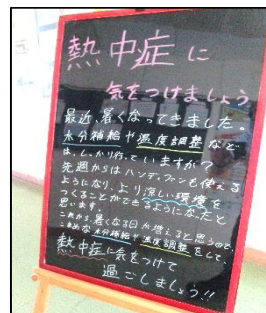 熱中症に
気をつけましょう
最近、暑くなってきました。
水分補給や温度調整など
は、しっかり行っていますか?
先週からはハンディファンも使える
ようになり、より涼しい環境を
つくることができるようになったと
思います。
これから、暑くなる日が増えると思うので、
水分補給や温度調整をして、
熱中症に気をつけて
過ごしましょう!!